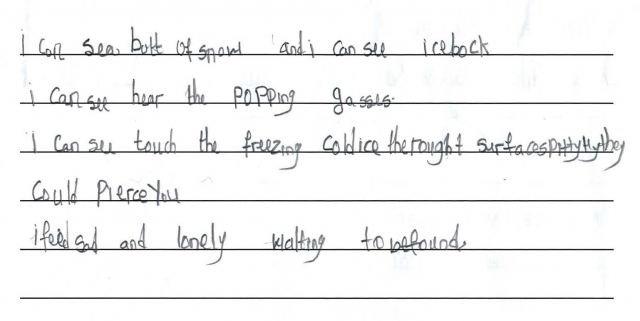 i can sea butt of snow and i can see icebock
i can see hear the POPPing gasses.
I can see touch the freezing coldice the rought surfaces they
Could PierceYou
i feel sad and lonely waiting to befound